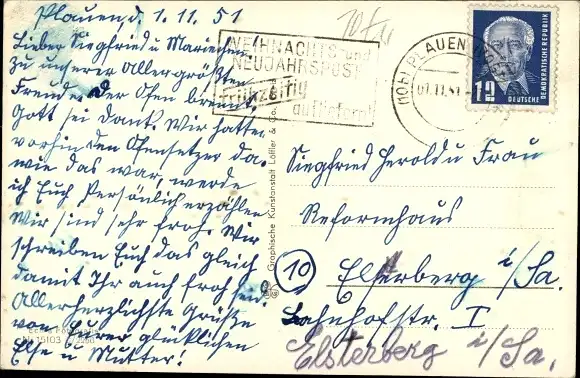 Plauen d. 1.11.51
Lieber Siegfried u. Mariechen
zu unserer Allergrößten
Freude der Ofen brennt
Gott sei Dank. Wir hatten
vorhin den Ofensetzer da.
wie das war, werde
ich Euch Persönlich erzählen
Wir sind sehr froh. Wir
schreiben Euch das gleich
damit Ihr auch froh seid.
Allerherzlichste Grüße
von Eurer glücklichen
Else u. Mutter!
15103
WEIHNACHTS- und
NEUJAHRSPOST
Frühzeitig
aufliefern!
(10b) PLAUEN
01.11.51
12
DEUTSCHE
DEMOKRATISCHE REPUBLIK
Graphische Kunstanstalt Löffler & Co.
Siegfried Herold u. Frau
Reformhaus
10 Elsterberg i/Sa.
Bahnhofstr. I
Elsterberg i/Sa.